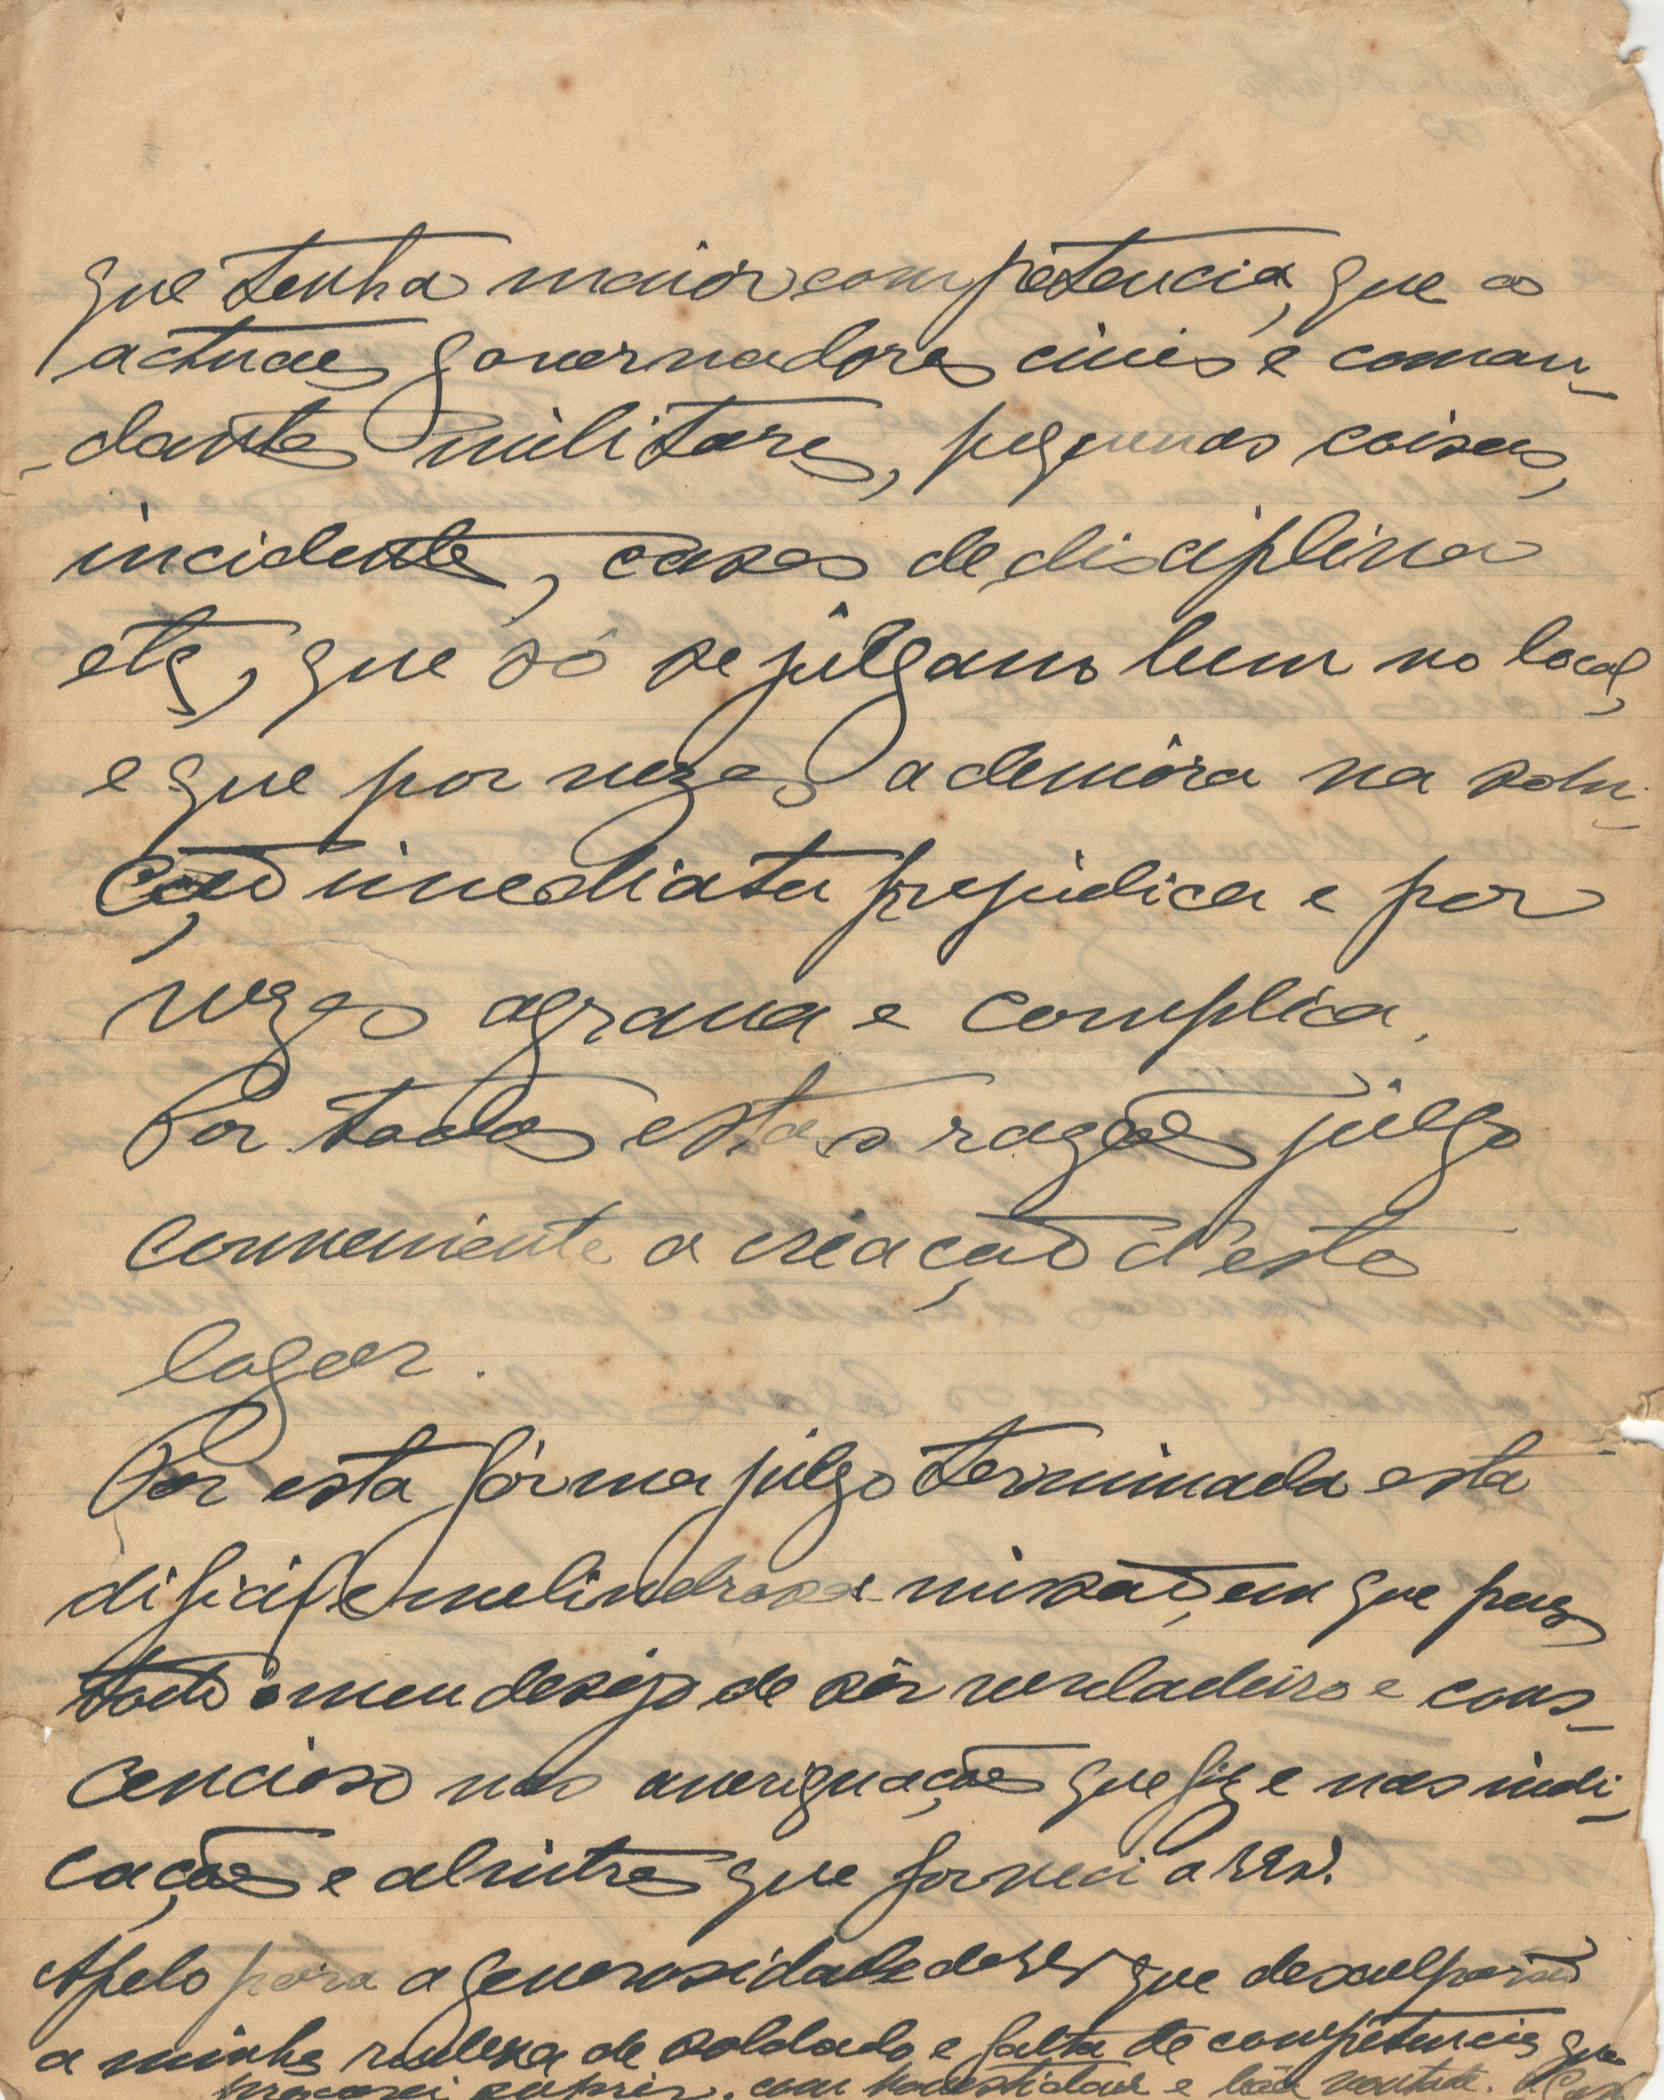 que tenha maior competencia, que os
actuaes governadores civis e coman-
-dantes militares, pequenas coisas,
incidentes, casos de disciplina
etc, que só se júlgam bem no local,
e que por vezes a demóra na solu-
ção imediata prejudica e por
vezes agrava e complica.
Por todas estas razões júlgo
conveniente a creação d'este
logar.
Por esta fórma júlgo terminada esta
dificil e melindrosa missão, em que puz
todo o meu desejo de sêr verdadeiro e cons-
cencioso nas averiguações que fiz e nas indi-
cações e alvitres que forneci a
Apelo para a generosidade de que desculparão
a minha rudeza de soldado e falta de competencia que
procurei suprir, com honestidade e bôa vontade.